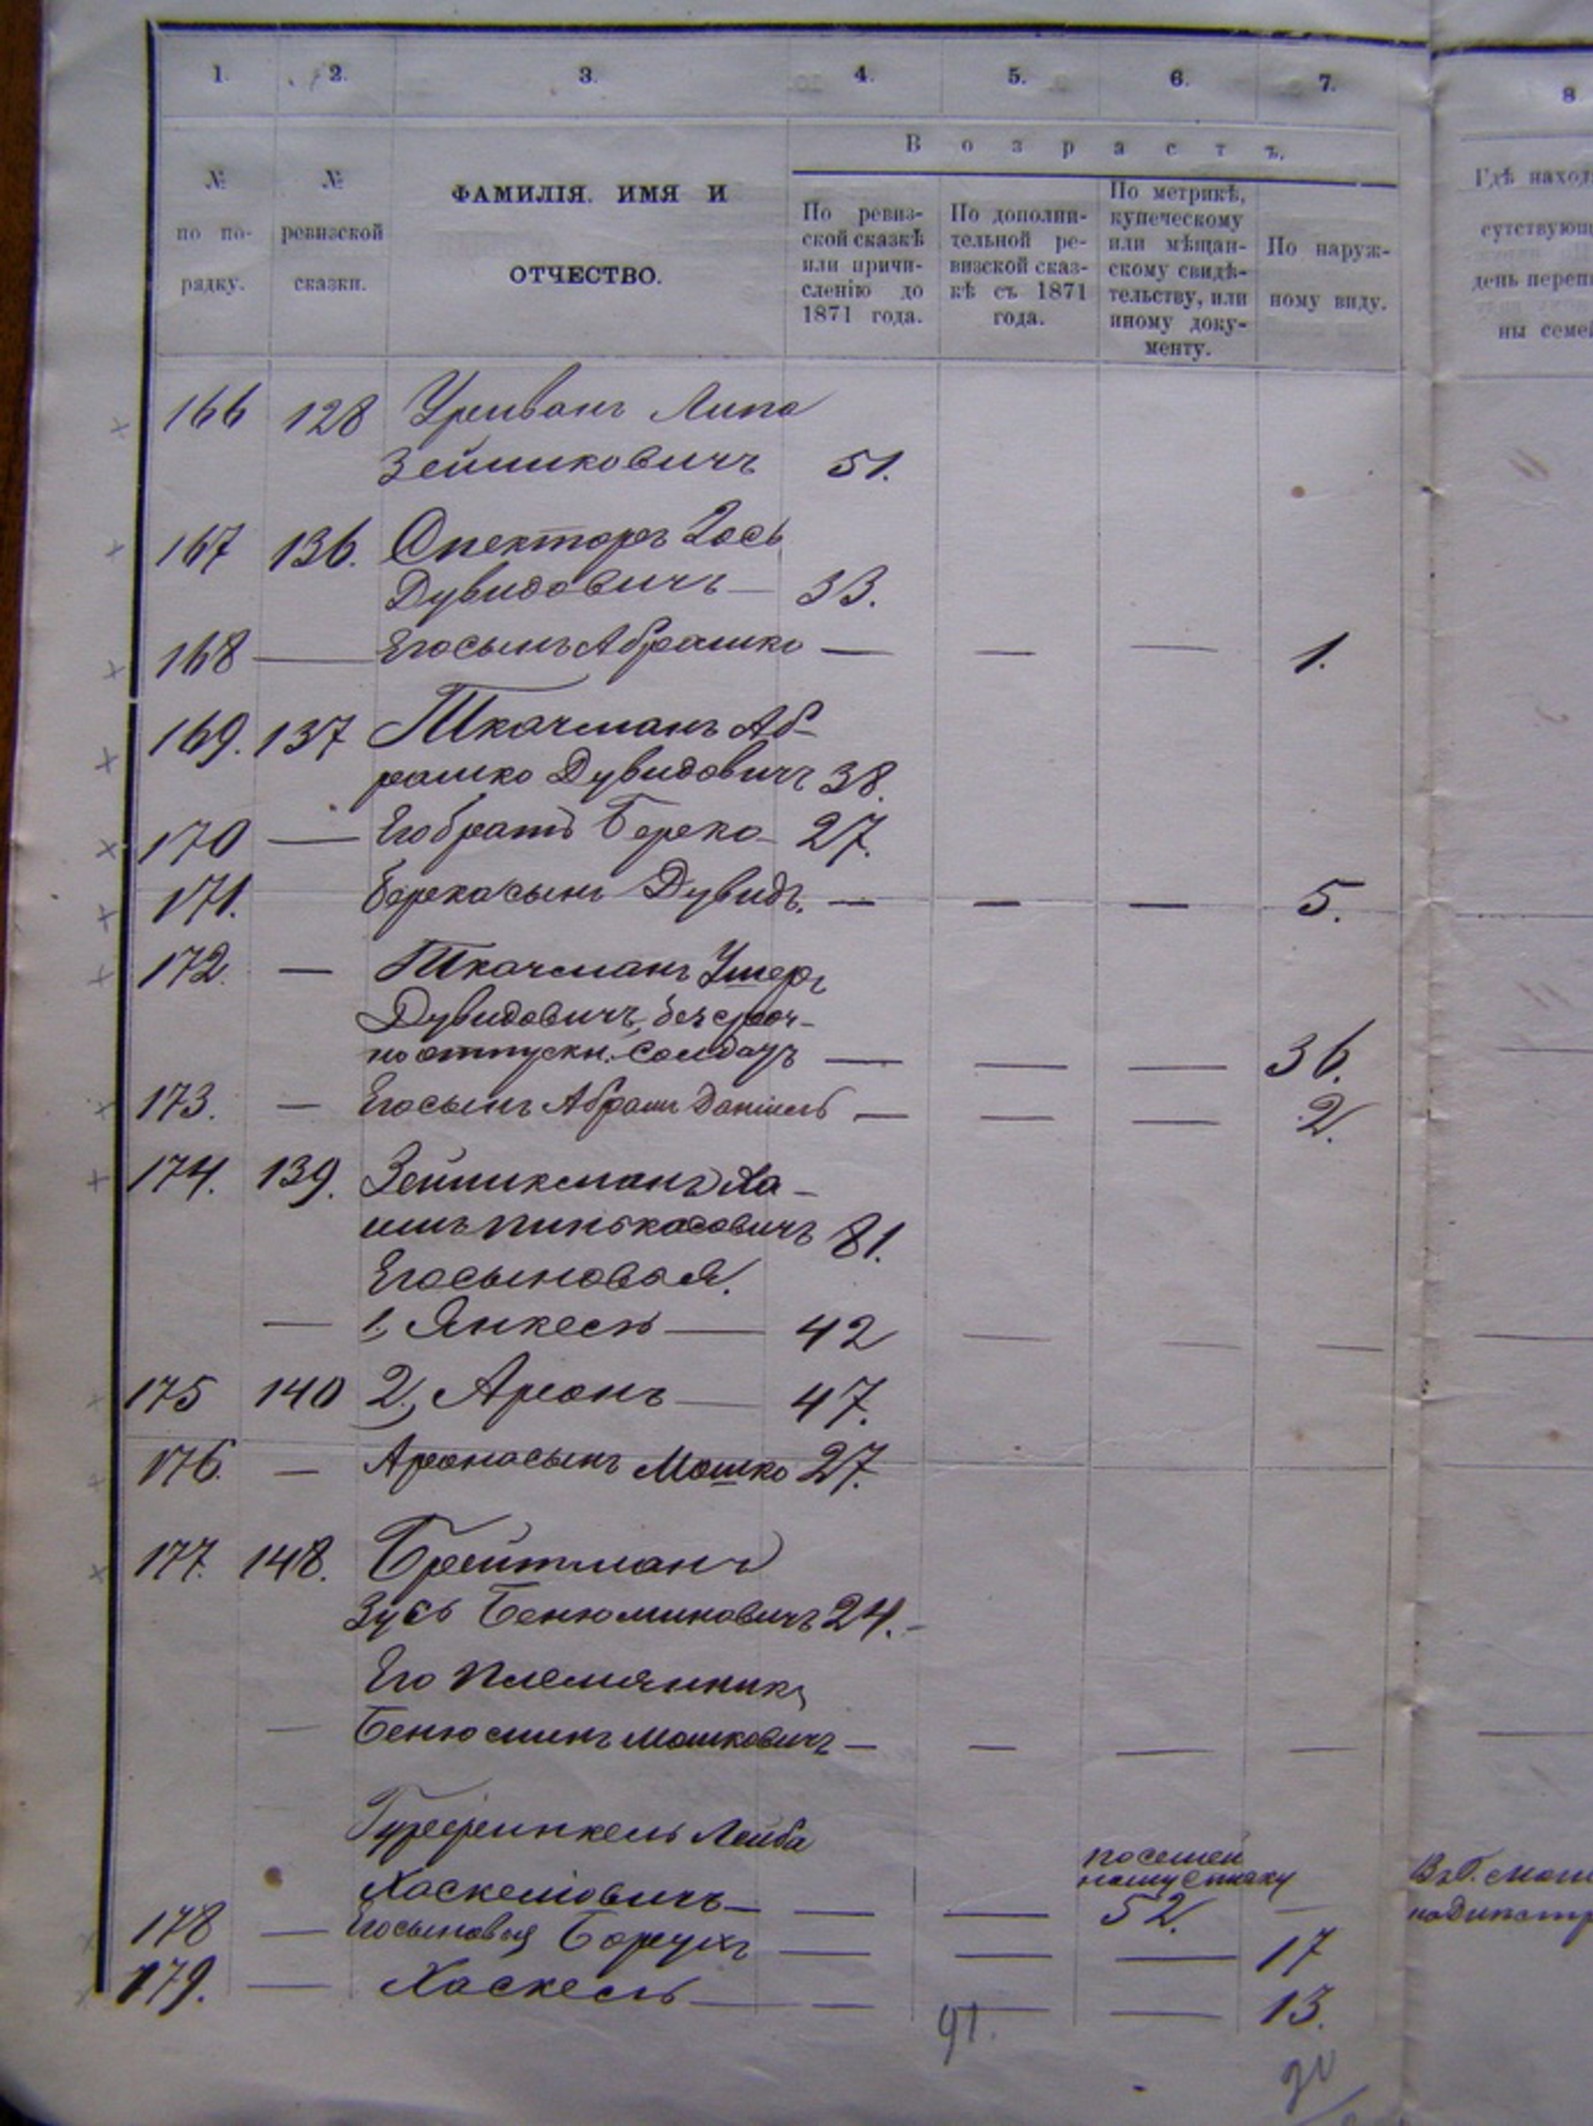 1. 2. 3. 4. 5. 6. 7. 8
Возрастъ.
№ по по-рядку.
№ ревизской сказки.
ФАМИЛІЯ. ИМЯ И
ОТЧЕСТВО.
По ревиз-
ской сказкѣ
или причи-
сленію до
1871 года.
По дополни-
тельной ре-
визской сказ-
кѣ съ 1871
года.
По метрикѣ,
купеческому
или мѣщан-
скому свидѣ-
тельству, или
иному доку-
менту.
По наруж-
ному виду.
Гдѣ наход
сутствующ
день переп
ны семей
166 128 Липа
Зейликовичъ 51.
167 136. Спекторъ Іось
Дувидовичъ — 33.
168 — Его сынъ Абрашко — — — 1.
169. 137 Ткачманъ Аб-
рашко Дувидовичъ 38.
170 — Его братъ Берко — 27.
171. Берка сынъ Дувидъ. — — — 5.
172. — Ткачманъ Ушеръ
Дувидовичъ, безсроч-
но отпускн. солдатъ — — — 36.
173. — Его сынъ Абрам Даніилъ — — — 2.
174. 139. Зейликманъ Ха-
имъ Пинькасовичъ 81.
Его сыновья.
— 1., Янкель — 42 — — —
175 140 2., Аронъ — 47.
176. — Арона сынъ Мошко 27.
177. 148. Брейтманъ
Зусь Бенюминовичъ 24. —
Его племянникъ
— Бенюминъ Мошковичъ — — — —
Гурфинкель Лейба
Хаскелювичъ — — — 52. —
по семей
ному списку
178 — Его сыновья Борухъ — — — 17
179. — Хаскель — — — — 13.
91.